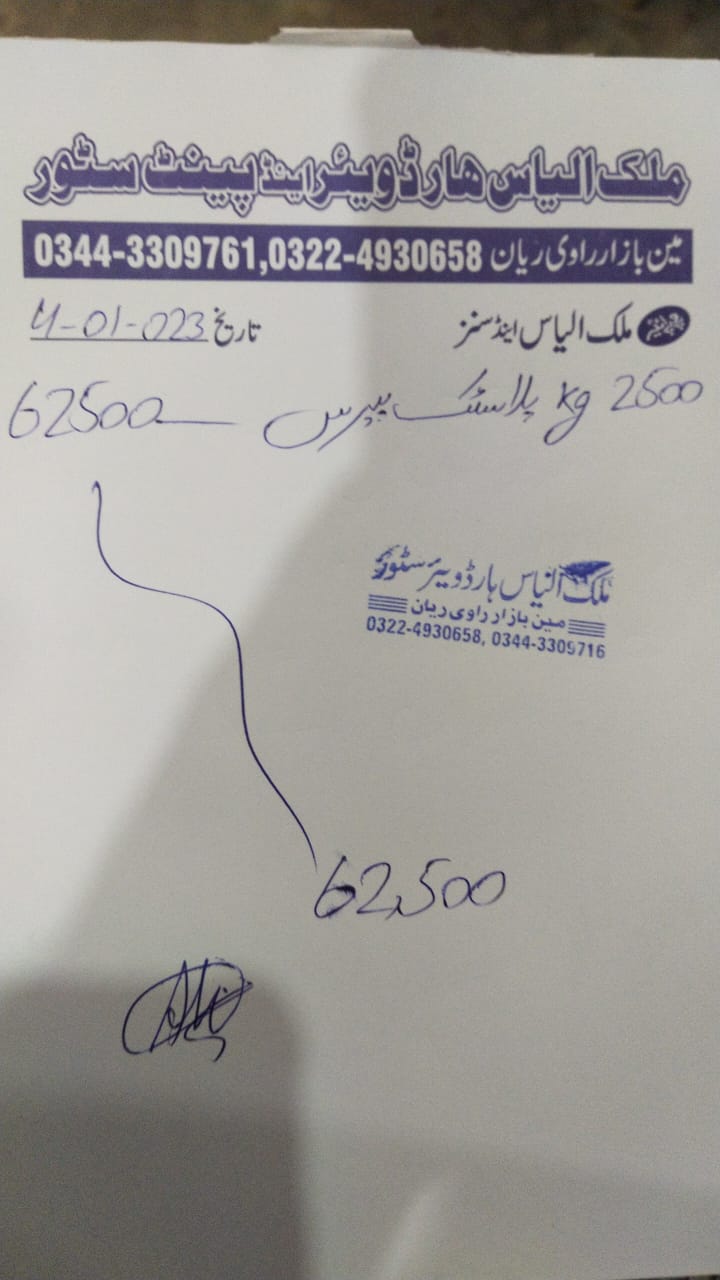 ملک الیاس ھارڈویئر اینڈ پینٹ سٹور
مین بازار راوی ریان 0344-3309761,0322-4930658
ملک الیاس اینڈ سنز
تاریخ 4-01-023
2500 kg پلاسٹک پیرس 62500
ملک الیاس ہارڈویئر سٹور
مین بازار راوی ریان
0322-4930658, 0344-3309716
62,500